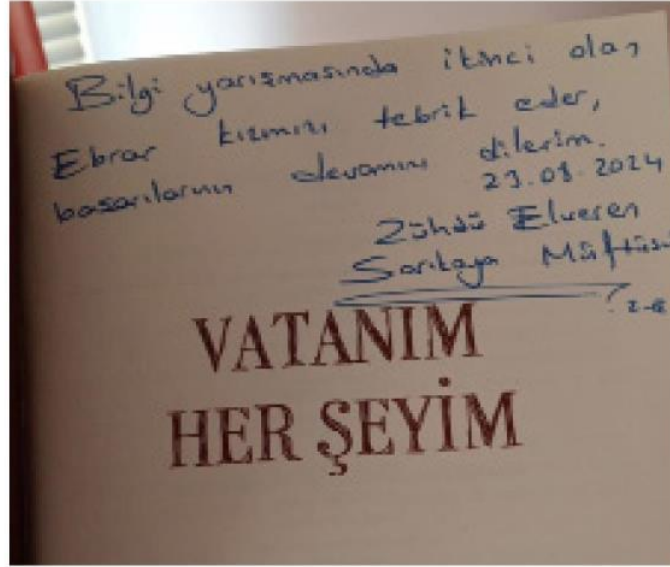 Bilgi yarışmasında ikinci olan
Ebrar kızımızı tebrik eder,
başarılarının devamını dilerim.
23.08.2024
Zühdü Elveren
Sarıkaya Müftüsü
VATANIM
HER ŞEYİM